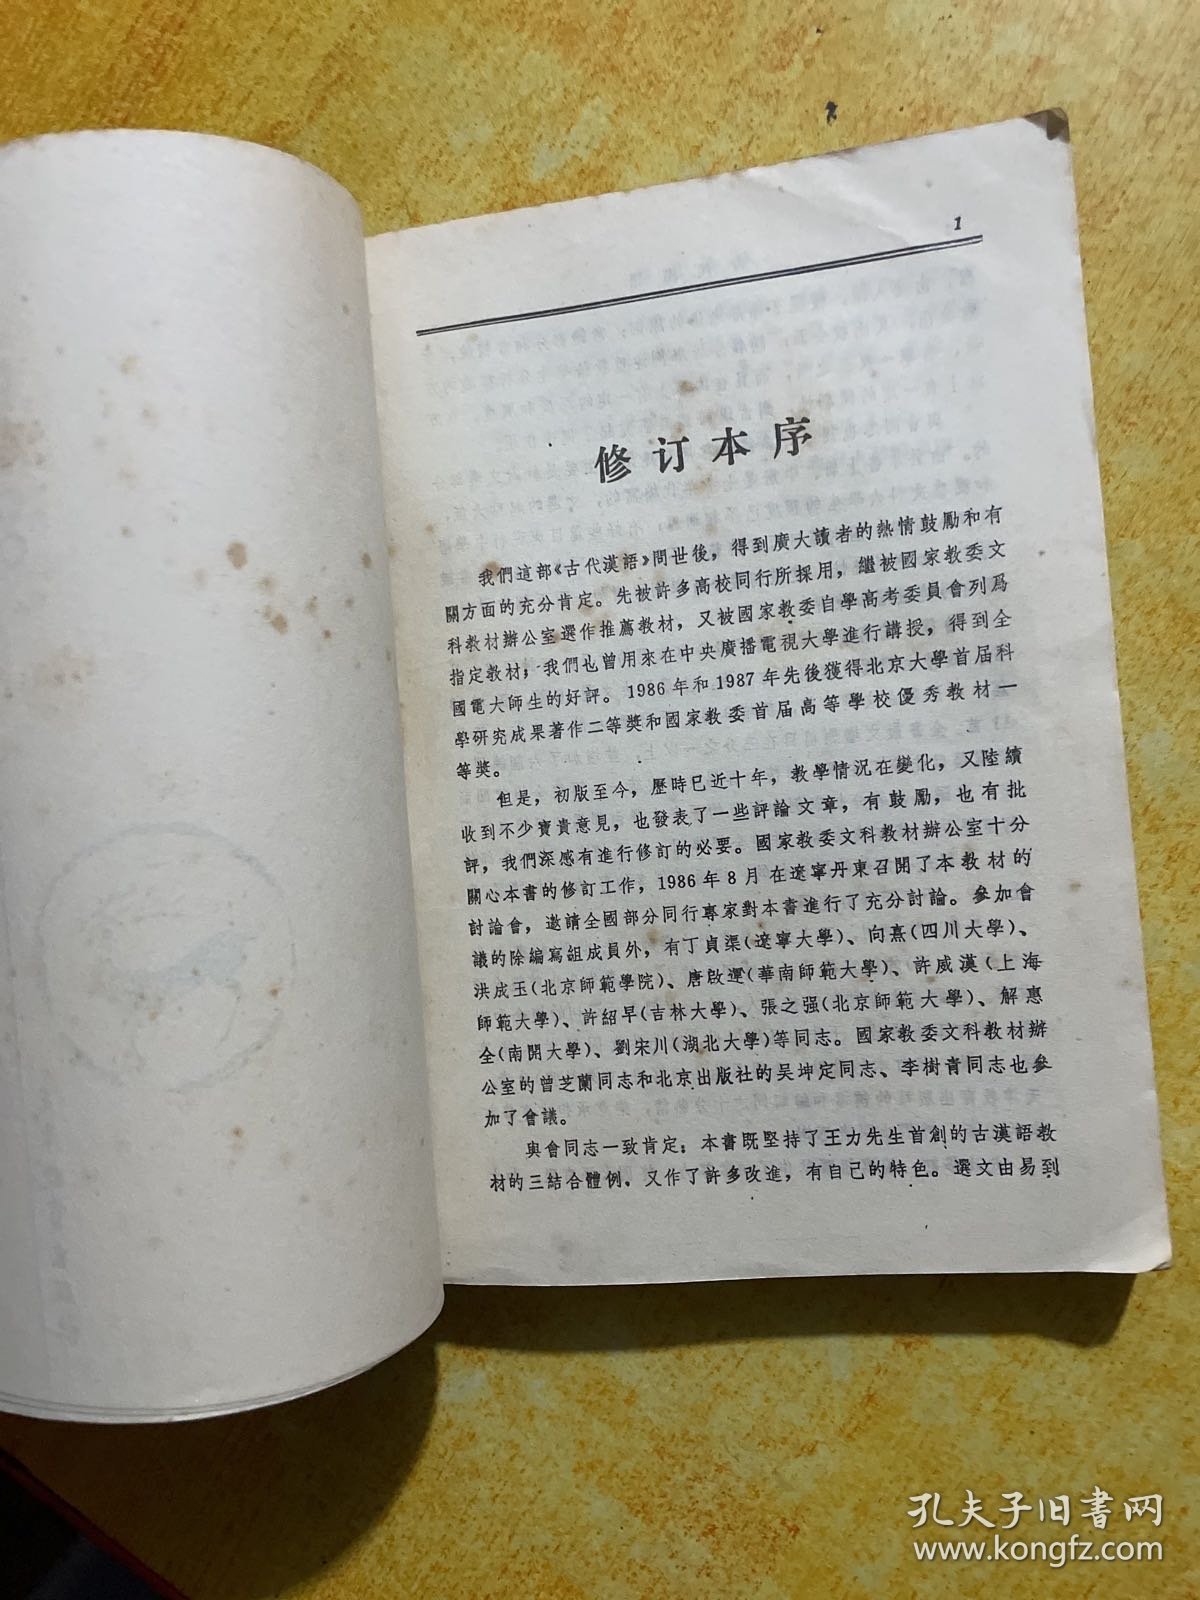 1
修订本序
我們這部《古代漢語》問世後，得到廣大讀者的熱情鼓勵和有
關方面的充分肯定。先被許多高校同行所採用，繼被國家教委文
科教材辦公室選作推薦教材，又被國家教委自學高考委員會列爲
指定教材；我們也曾用來在中央廣播電視大學進行講授，得到全
國電大師生的好評。1986年和1987年先後獲得北京大學首届科
學研究成果著作二等獎和國家教委首届高等學校優秀教材一
等獎。
但是，初版至今，歷時已近十年，教學情況在變化，又陸續
收到不少寶貴意見，也發表了一些評論文章，有鼓勵，也有批
評，我們深感有進行修訂的必要。國家教委文科教材辦公室十分
關心本書的修訂工作，1986年8月在遼寧丹東召開了本教材的
討論會，邀請全國部分同行專家對本書進行了充分討論。參加會
議的除編寫組成員外，有丁貞渠(遼寧大學)、向熹(四川大學)、
洪成玉(北京師範學院)、唐啟運(華南師範大學)、許威漢(上海
師範大學)、許紹早(吉林大學)、張之强(北京師範大學)、解惠
全(南開大學)、劉宋川(湖北大學)等同志。國家教委文科教材辦
公室的曾芝蘭同志和北京出版社的吴坤定同志、李樹青同志也參
加了會議。
與會同志一致肯定：本書既堅持了王力先生首創的古漢語教
材的三結合體例，又作了許多改進，有自己的特色。選文由易到
孔夫子旧书网
www.kongfz.com